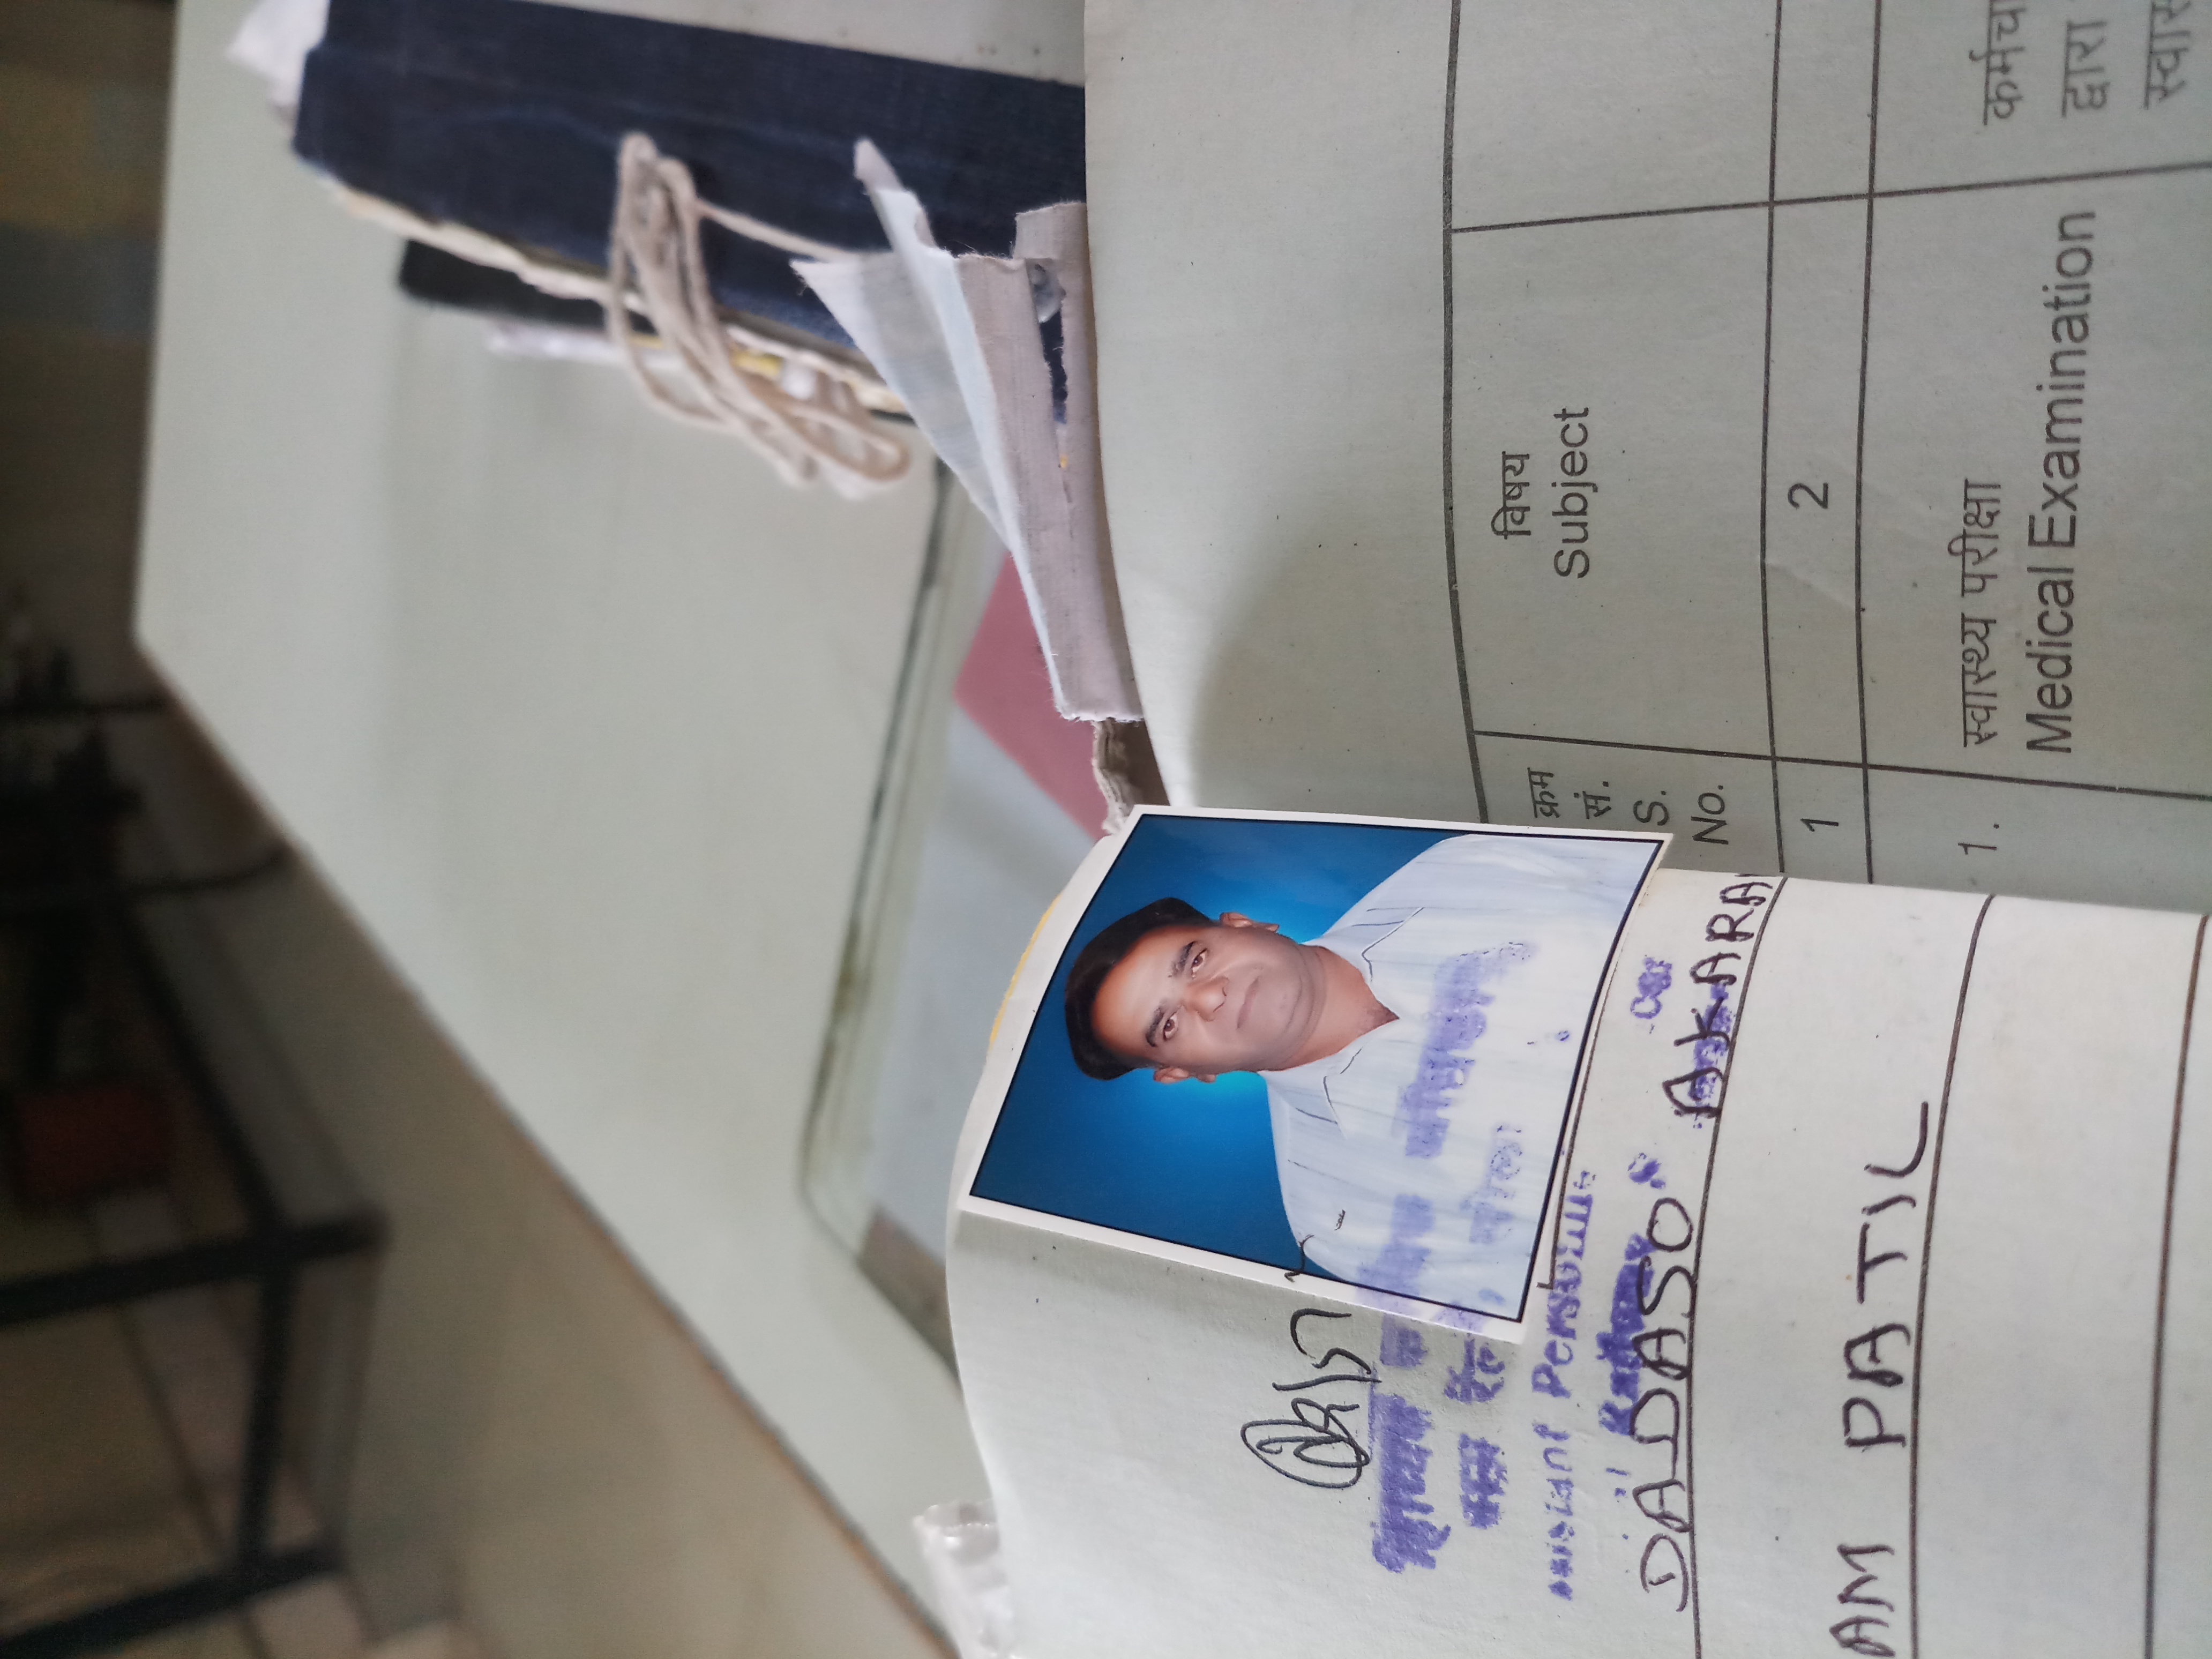 Assistant Personnel
Railway
DADASO AKARA
AM PATIL
क्रम
सं.
S.
No.
विषय
Subject
1
2
1.
स्वास्थ्य परीक्षा
Medical Examination
कर्मचा
द्वारा
स्वास